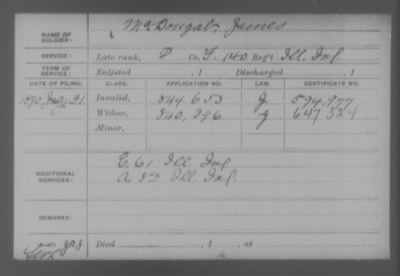 NAME OF SOLDIER: McDougal, James
SERVICE: Late rank, P Co. F, 140 Reg't Ill. Inf.
TERM OF SERVICE: Enlisted , 1 Discharged , 1
DATE OF FILING. CLASS. APPLICATION NO. LAW. CERTIFICATE NO.
1890, 21 Invalid, 844.653 J 594.977
Widow, 840,396 J 647324
Minor,
ADDITIONAL SERVICES: E. 61 Ill. Inf.
A. 83 Ill. Inf.
REMARKS:
Died , 1 , at